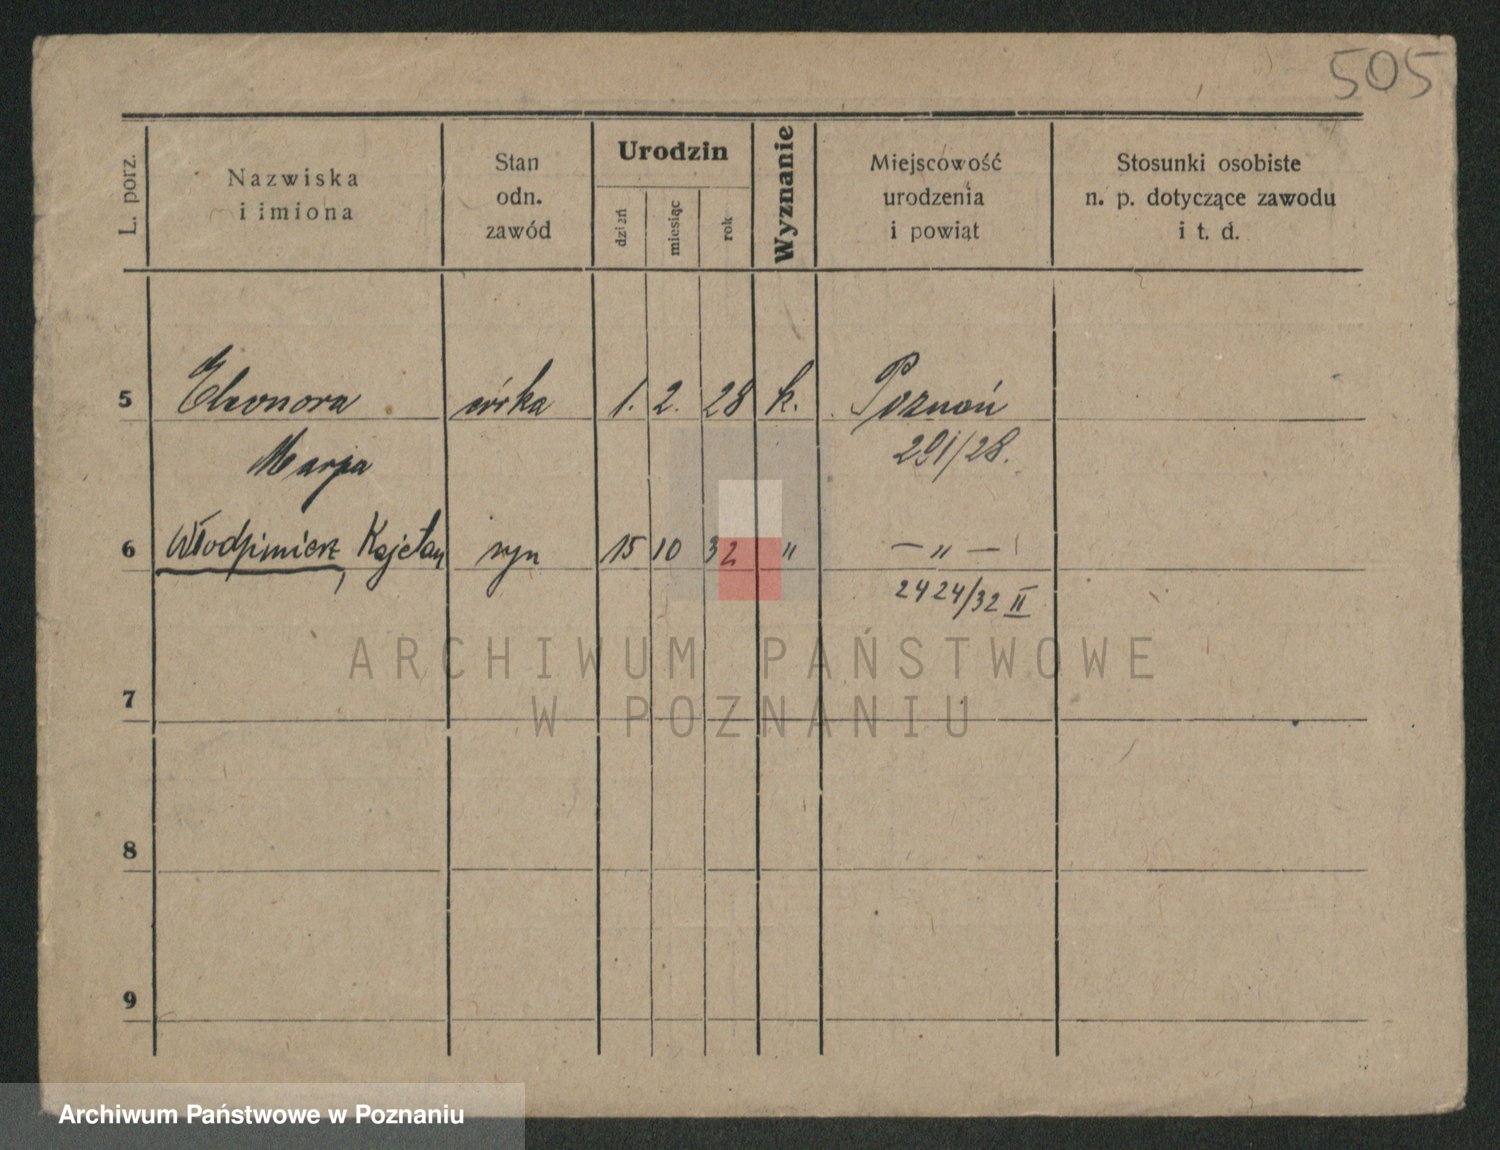 505
L. porz.
Nazwiska
i imiona
Stan
odn.
zawód
Urodzin
dzień
miesiąc
rok
Wyznanie
Miejscowość
urodzenia
i powiąt
Stosunki osobiste
n. p. dotyczące zawodu
i t. d.
5 Eleonora córka 1. 2. 28 k. Poznań
Marja 291/28.
6 Włodzimierz, Kajetan syn 15 10 32 " — " —
2424/32 II
ARCHIWUM PAŃSTWOWE
W POZNANIU
7
8
9
Archiwum Państwowe w Poznaniu